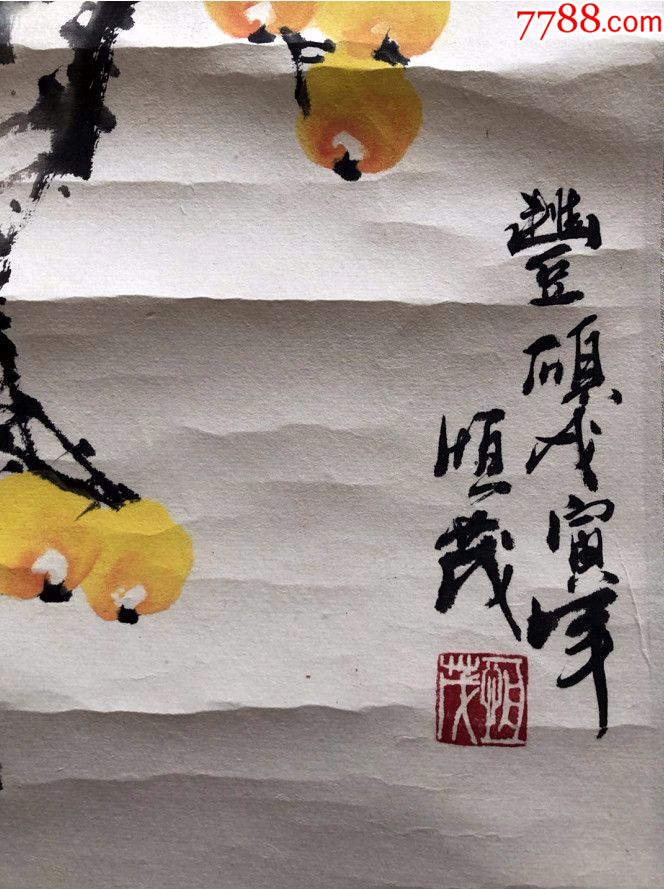 7788.com
豐碩戊寅年
恒茂
恒茂